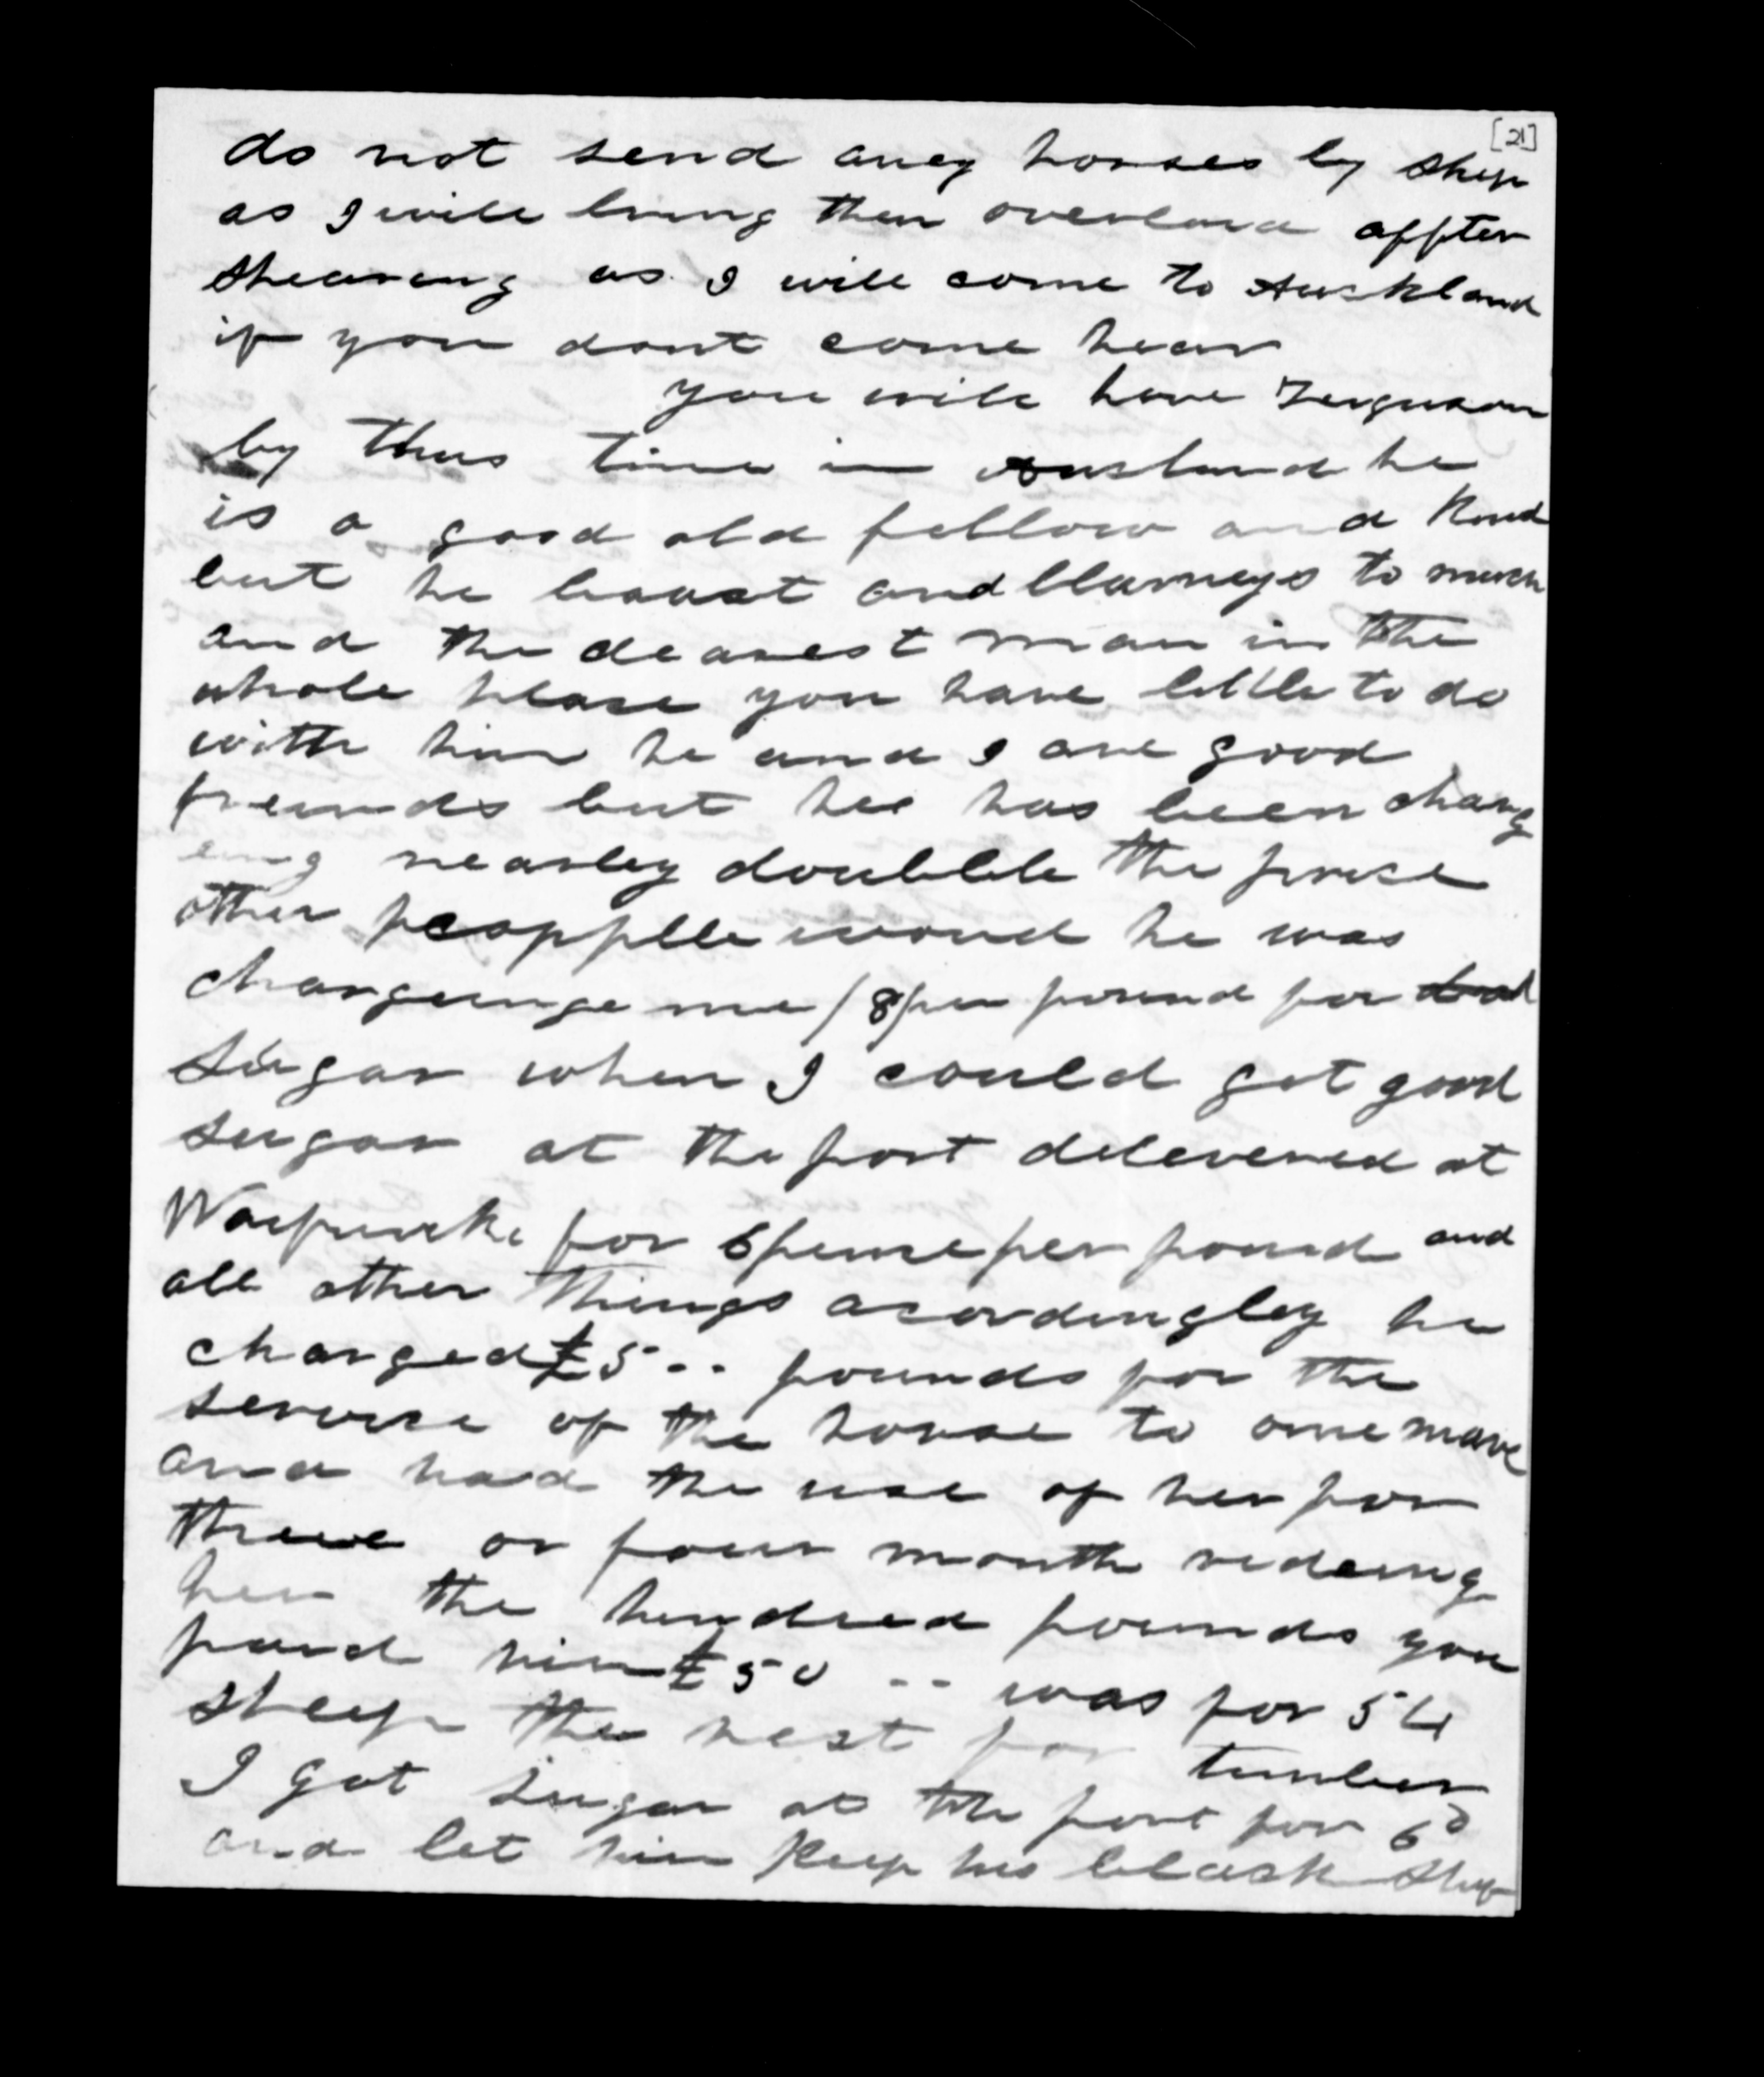 [21]
do not send aney horses by ship
as I will bring them overland affter
sheareng as I will come to Auckland
if you dont come hear
you will have Ferguson
by thus time in Auckland he
is a good old fellow and kind
but he boast and blarneys to much
and the dearest man in the
whole place you have little to do
with him he and I are good
freinds but hee has been charg
eing nearley doubble the price
other peopplle woud he was
chargeinge me /8/ per pound for bad
sugar when I could get good
sugar at the port delevered at
for 6 pence per pound and
all other things acordingley he
charged £5 - - pounds for the
service of the horse to one mare
and had the use of her for
threee or four month rideing
her the hundred pounds you
paid him £50 - - was for 54
sheep the rest for timber
I got sugar at the port for 6d
and let him keep his black sheep